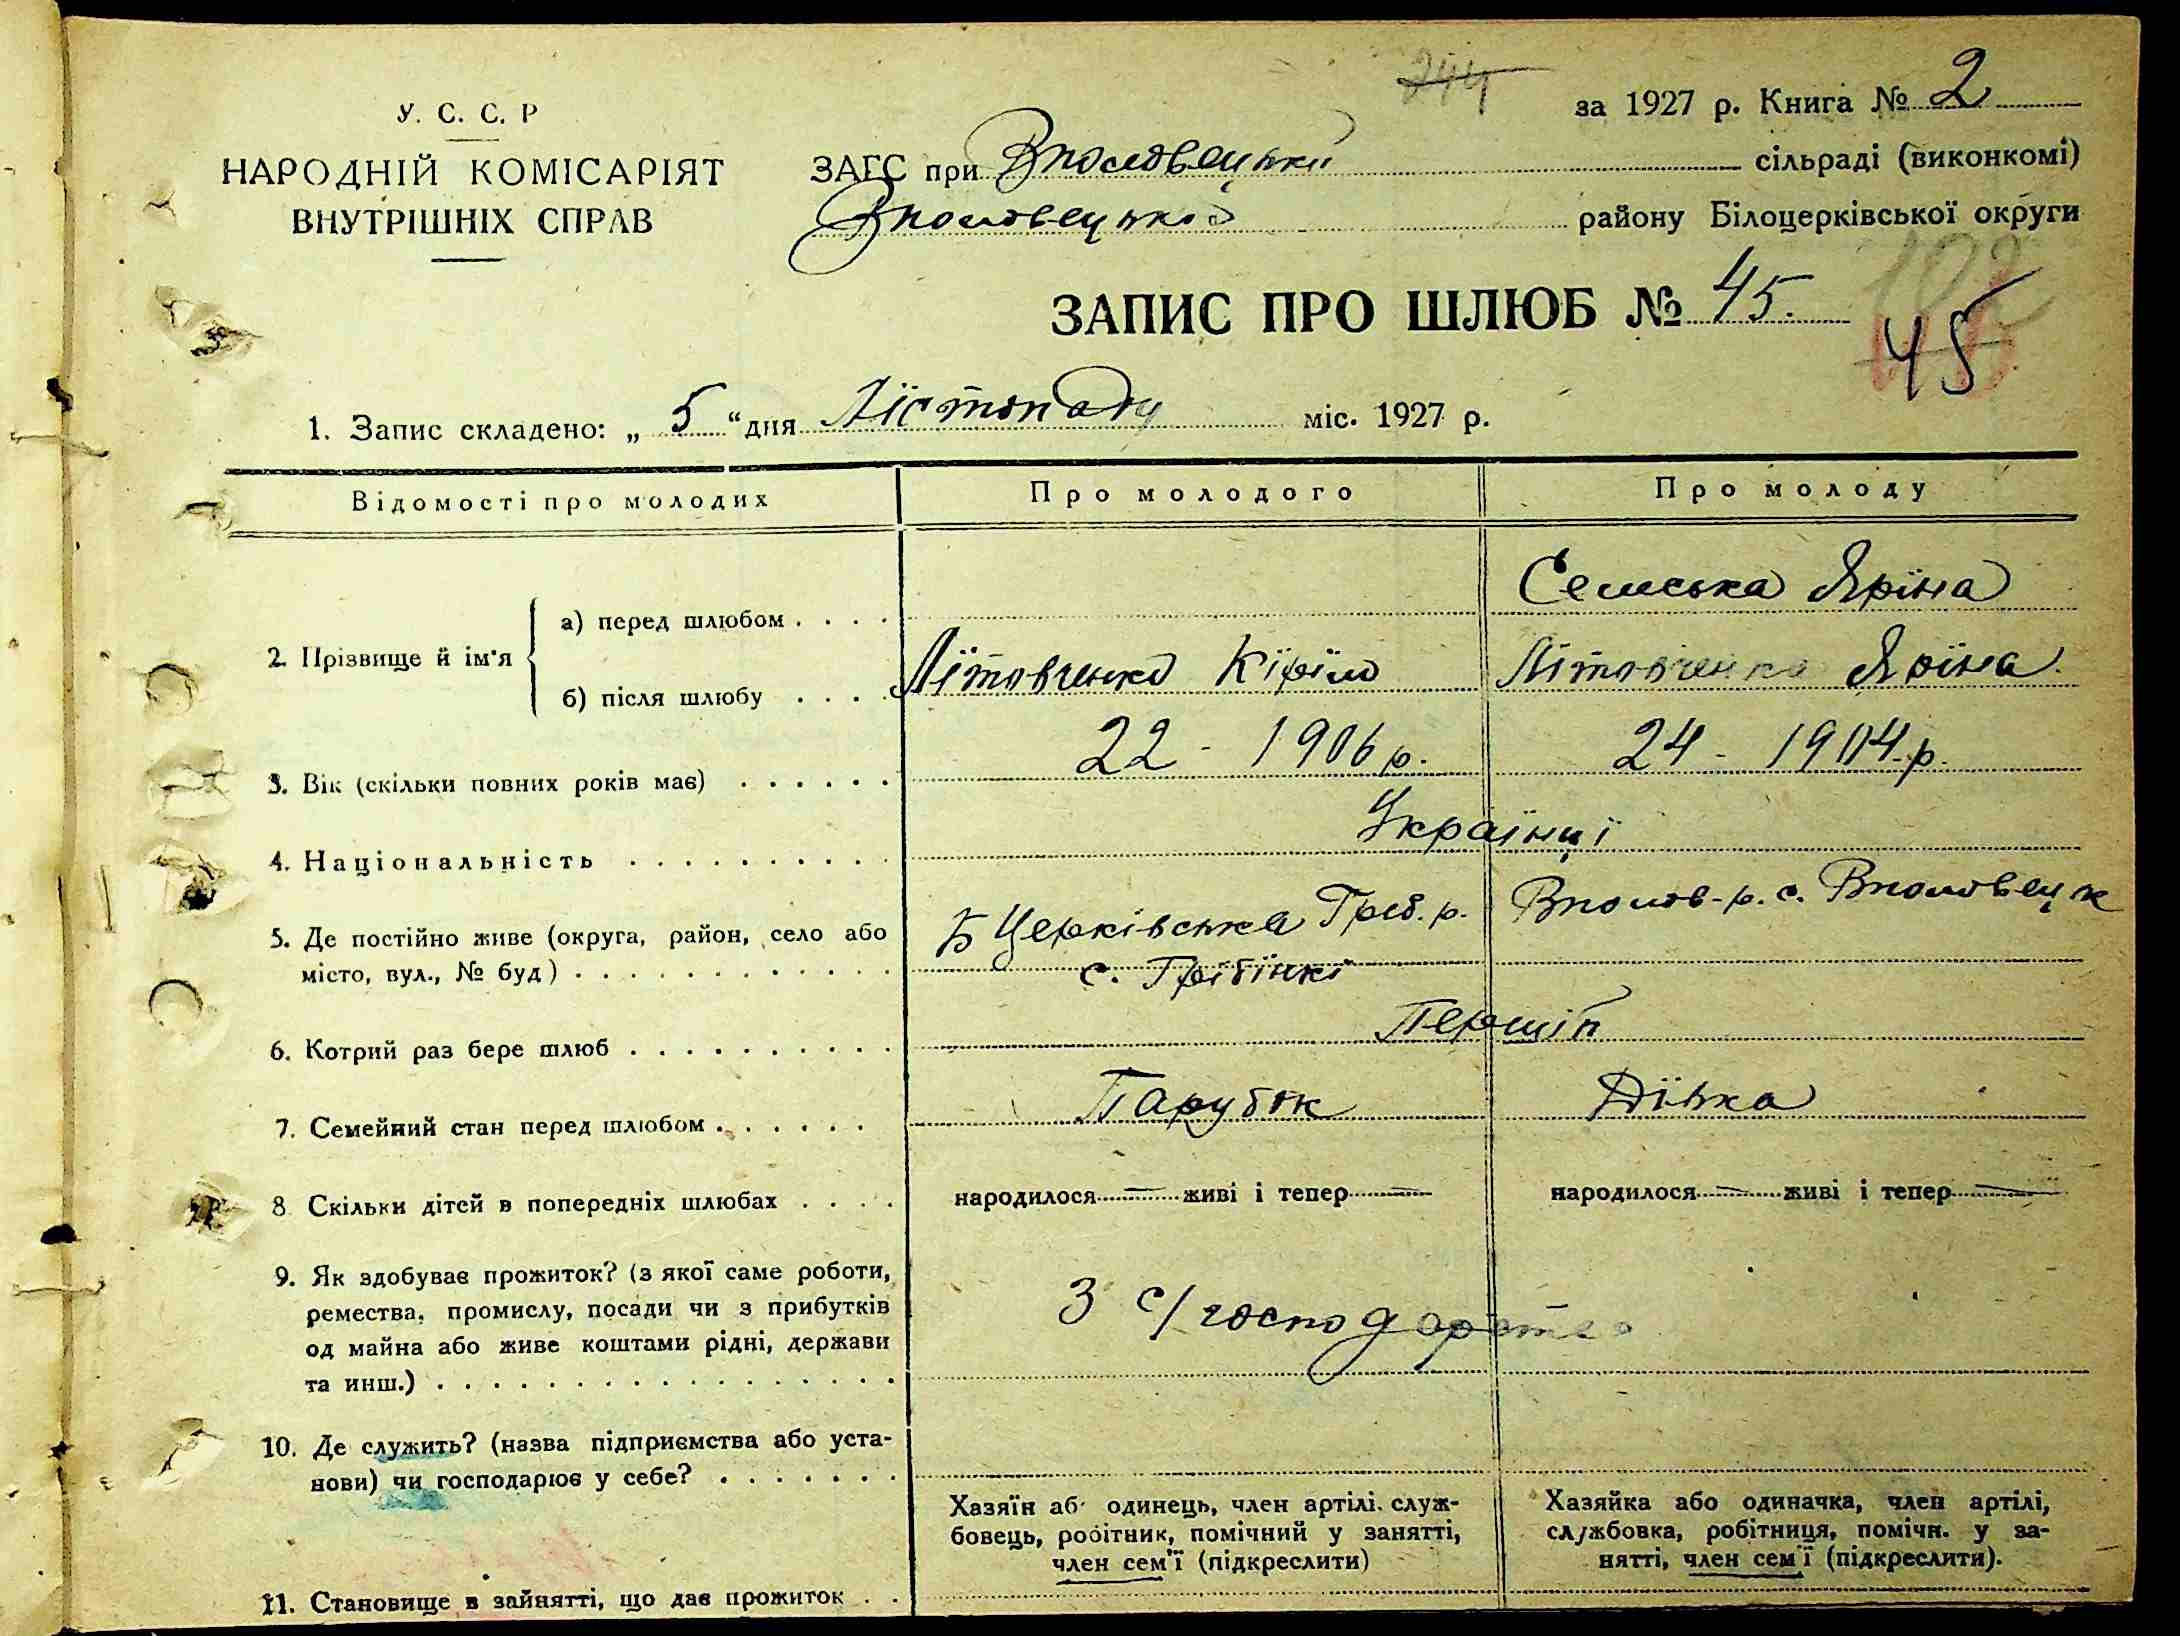 244
за 1927 р. Книга № 2
У. С. С. Р
НАРОДНІЙ КОМІСАРІЯТ
ВНУТРІШНІХ СПРАВ
ЗАГС при Вполовецькій сільраді (виконкомі)
Вполовецького району Білоцерківської округи
ЗАПИС ПРО ШЛЮБ № 45.
45
1. Запис складено: „ 5 “ дня Лїстопаду міс. 1927 р.
Відомості про молодих Про молодого Про молоду
2. Прізвище й ім'я
а) перед шлюбом . . . . Семська Яріна
б) після шлюбу . . . . Літовченко Кїріло Літовченко Яріна.
3. Вік (скільки повних років має) . . . . . . 22 - 1906 р. 24 - 1904 р.
4. Національність . . . . . . . . . . Українці
5. Де постійно живе (округа, район, село або Б Церківська Греб. р. Вполов-р. с. Вполовецьк
місто, вул., № буд) . . . . . . . . . . . . с. Грібінкі
6. Котрий раз бере шлюб . . . . . . . . . . Перший
7. Семейний стан перед шлюбом . . . . . . Парубок Дівка
8 Скільки дітей в попередніх шлюбах . . . . народилося — живі і тепер — народилося — живі і тепер —
9. Як здобуває прожиток? (з якої саме роботи,
ремества, промислу, посади чи з прибутків З с/господарства
од майна або живе коштами рідні, держави
та инш.) . . . . . . . . . . . . . . . . .
10. Де служить? (назва підприємства або уста-
нови) чи господарює у себе? . . . . . . .
Хазяїн аб одинець, член артілі. служ-
бовець, робітник, помічний у занятті,
член сем'ї (підкреслити)
Хазяйка або одиначка, член артілі,
службовка, робітниця, помічн. у за-
нятті, член сем'ї (підкреслити).
11. Становище в зайнятті, що дає прожиток . .